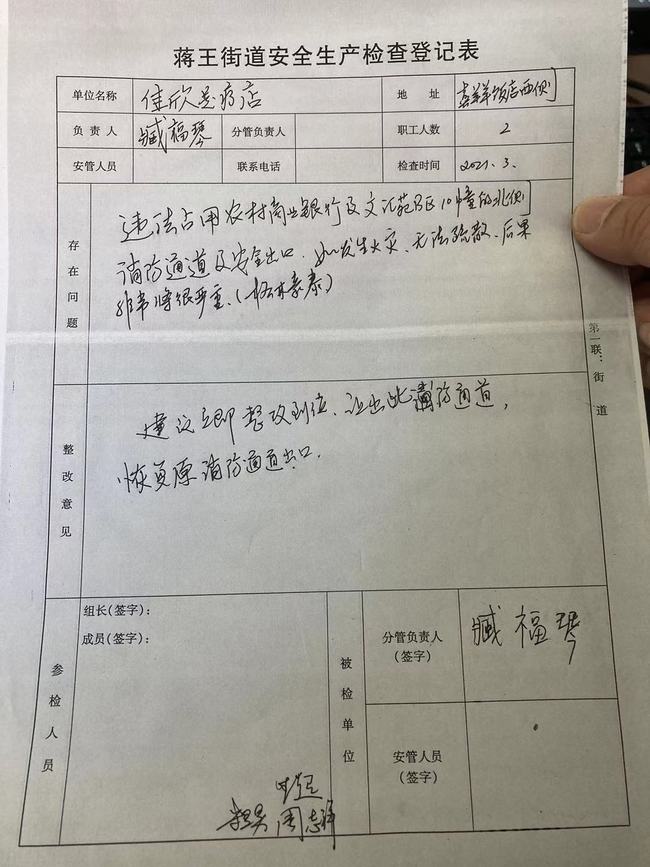 蒋王街道安全生产检查登记表
单位名称 佳欣足疗店 地 址 喜羊羊饭店西侧
负责人 臧福琴 分管负责人 职工人数 2
安管人员 联系电话 检查时间 2021.3.
存在问题
违法占用农村商业银行及文汇苑B区10幢的北侧
消防通道及安全出口。如发生火灾、无法疏散、后果
非常将很严重。
第一联：街道
整改意见
建议立即整改到位、让出此消防通道，
恢复原消防通道出口.
参检人员
组长(签字)：
成员(签字)：
周志
被检单位
分管负责人
(签字)
臧福琴
安管人员
(签字)